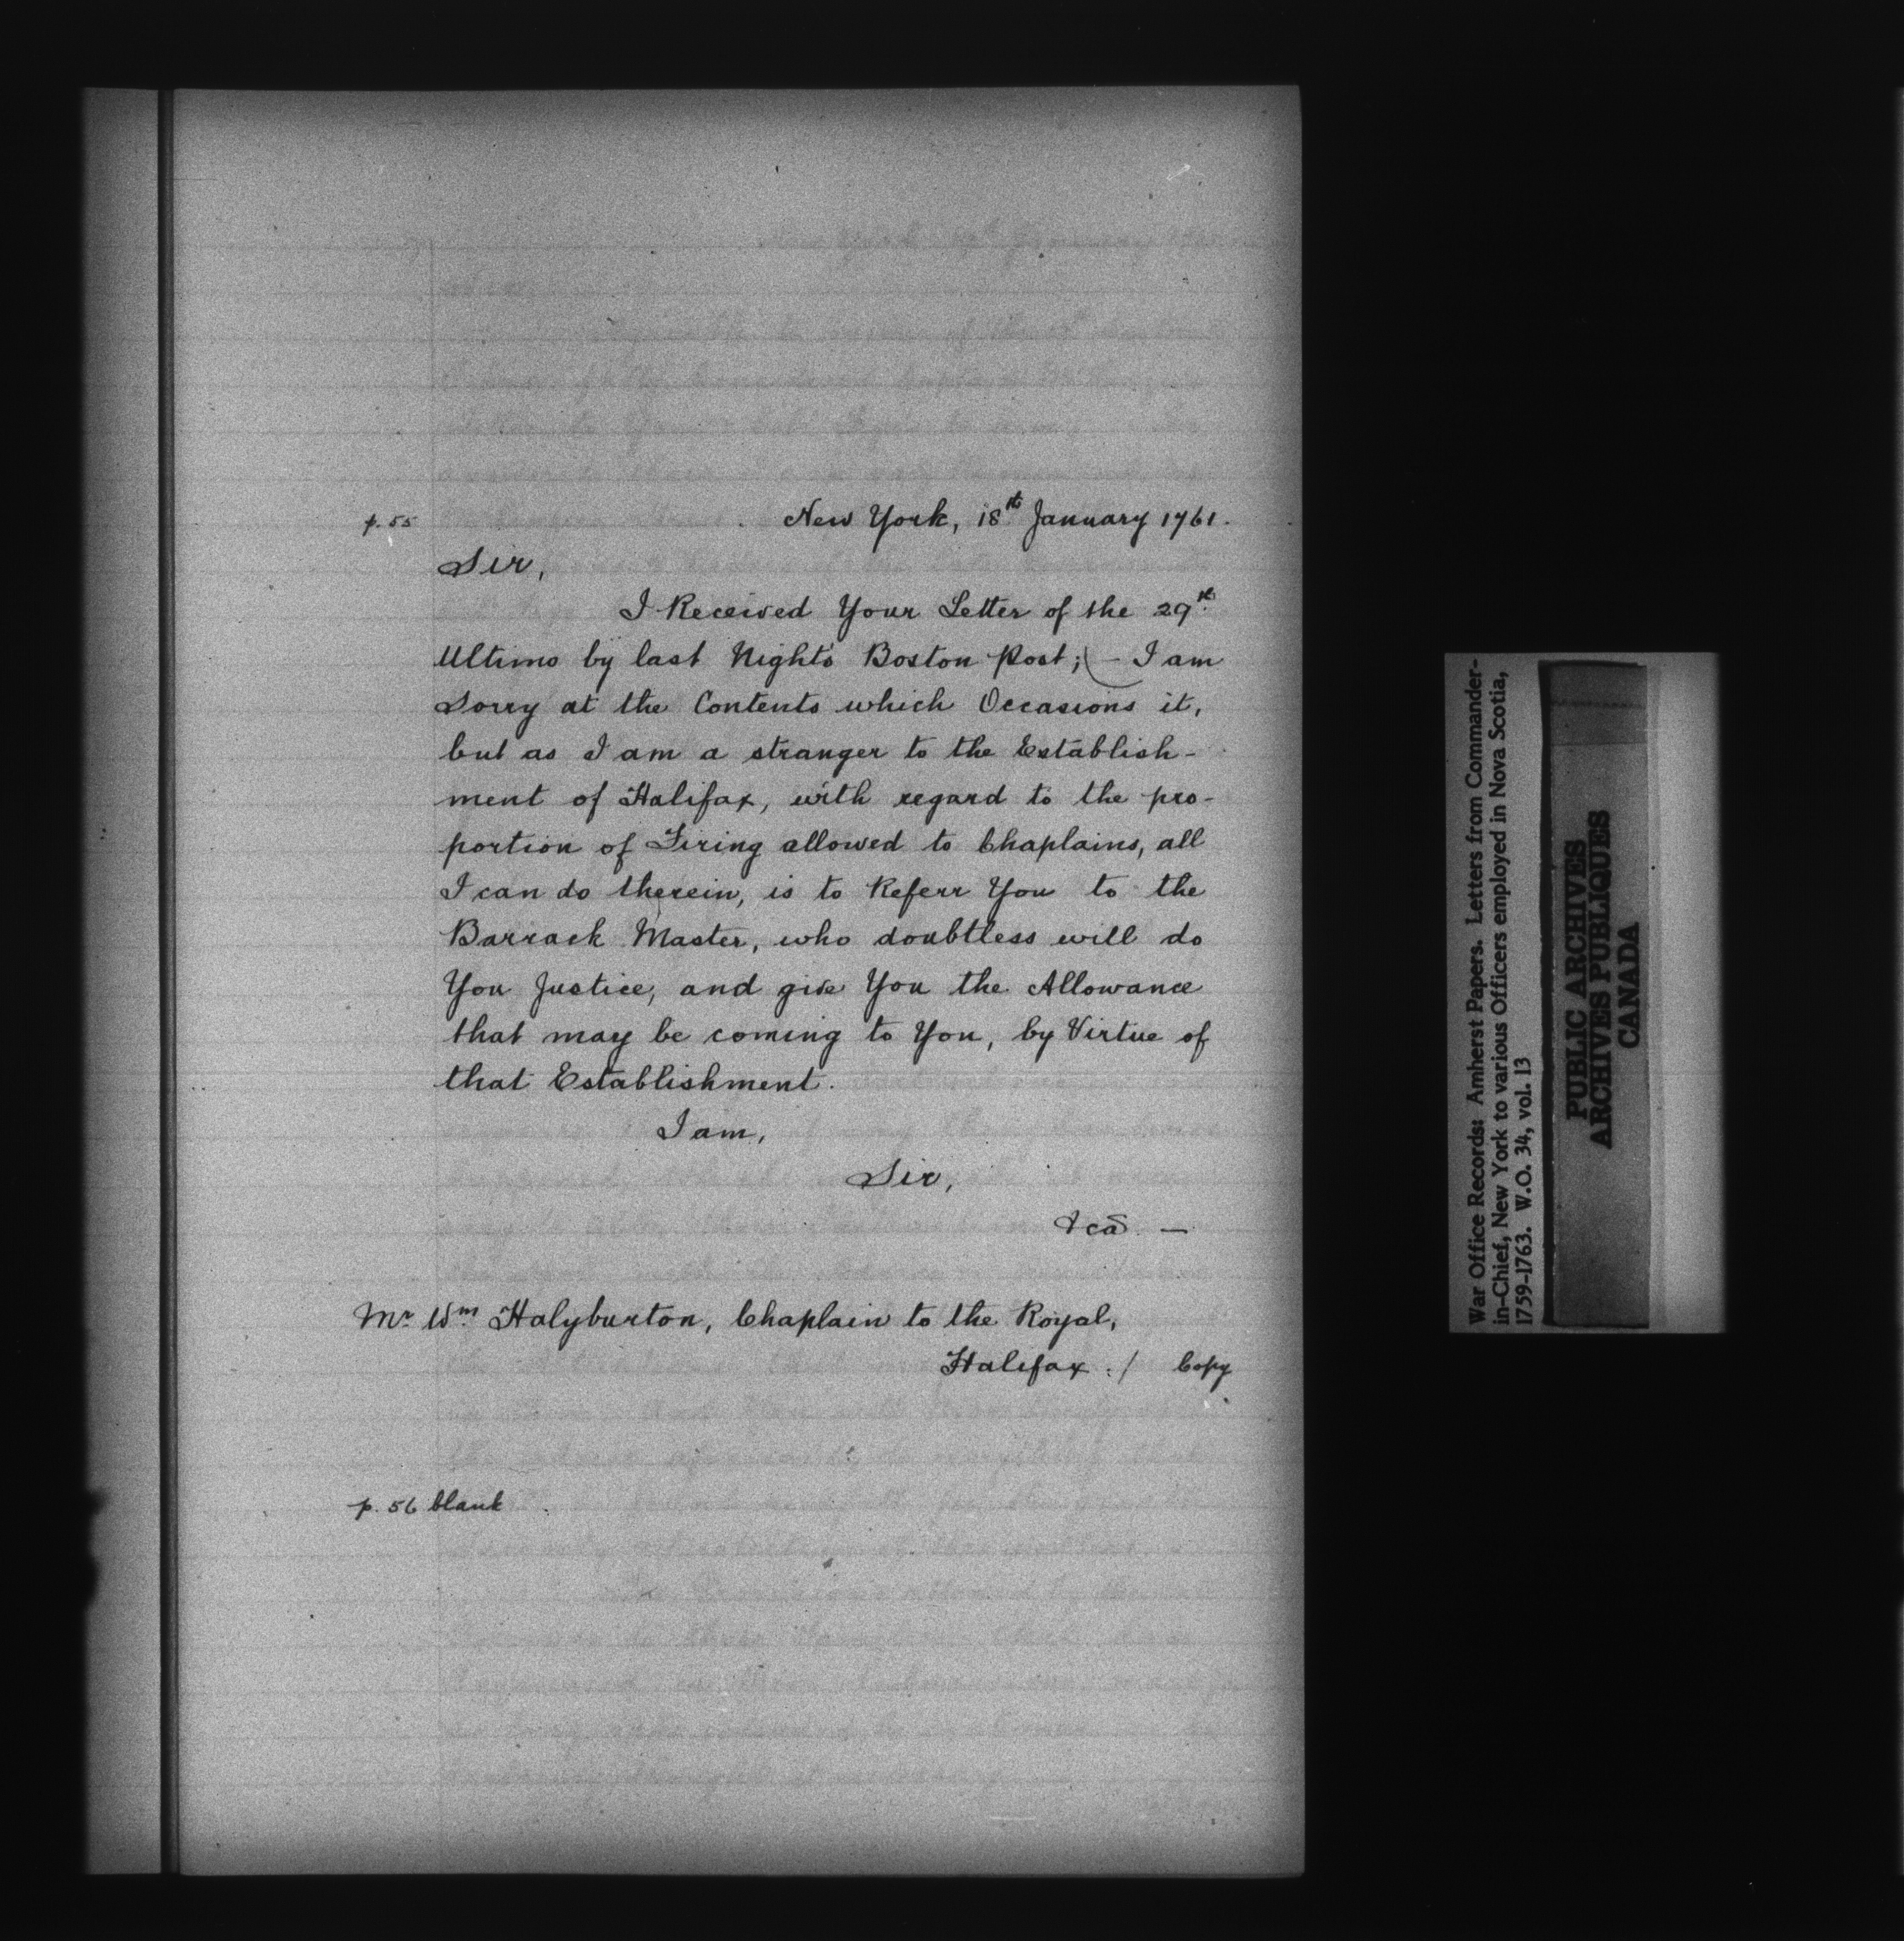 p. 55
New York, 18th January 1761.
Sir,
I Received Your Letter of the 29th
Ultimo by last Night's Boston Post; – I am
Sorry at the Contents which Occasions it,
but as I am a stranger to the Establish-
ment of Halifax, with regard to the pro-
portion of Firing allowed to Chaplains, all
I can do therein, is to Referr You to the
Barrack Master, who doubtless will do
You Justice, and give You the Allowance
that may be coming to You, by Virtue of
that Establishment.
I am,
Sir,
&ca. —
Mr. Wm. Halyburton, Chaplain to the Royal,
Halifax :/ Copy
p. 56 blank
War Office Records: Amherst Papers. Letters from Commander-
in-Chief, New York to various Officers employed in Nova Scotia,
1759-1763. W.O. 34, vol. 13
PUBLIC ARCHIVES
ARCHIVES PUBLIQUES
CANADA